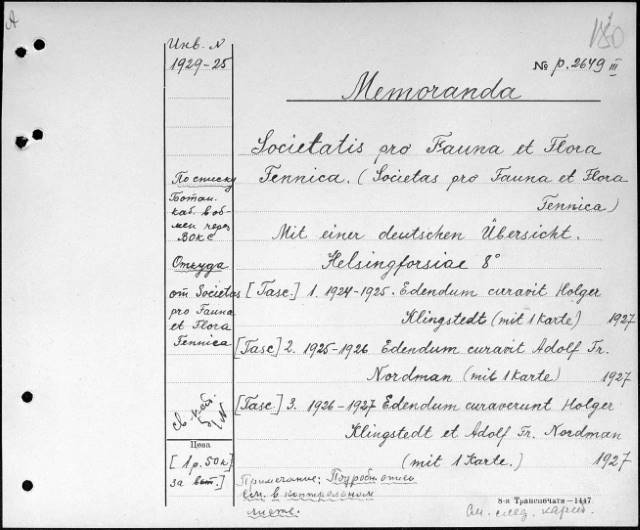 А
180
Инв. N
1929-25
№ p. 2649 III
Memoranda
Societatis pro Fauna et Flora
Fennica. (Societas pro Fauna et Flora
Fennica)
Mit einer deutschen Übersicht.
Helsingforsiae 8°
[Fasc.] 1. 1924-1925. Edendum curavit Holger
Klingstedt (mit 1 Karte) 1927
[Fasc] 2. 1925-1926 Edendum curavit Adolf Fr.
Nordman (mit 1 Karte) 1927
[Fasc.] 3. 1926-1927 Edendum curaverunt Holger
Klingstedt et Adolf Fr. Nordman
(mit 1 Karte.) 1927
По списку
Ботан.
каб. в об-
мен через
ВОКС
Откуда
от Societas
pro Fauna
et Flora
Fennica
Цена
[1 р. 50 к]
за вып.]
Примечание: Подробн. опис
см. в контрольном
листе.
8-я Транспечать—1447.
См. след. карт.